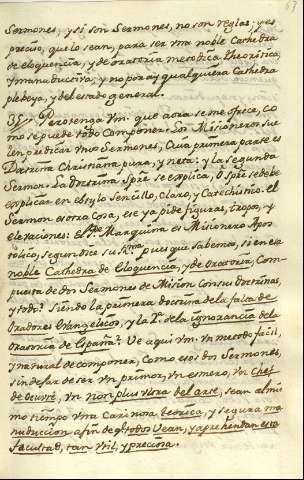 67
Sermones, y si son Sermones, no son reglas: y es
preciso, que lo sean, para ser una noble Cathedra
de eloquencia, y de oratoria metodica, theoristica,
y manuductiva; y no por ay qualquiera Cathedra
plebeya, y del estado general.
38 Pero tenga Vm. que aora se me ofrece, co
mo se puede todo componer. Los Misioneros sue
len predicar unos Sermones, cuia primera parte es
Doctrina Christiana pura, y neta: y la segunda
Sermon. La Doctrina Spre se explica, ò Spre se debe
explicar en estylo sencillo, claro, y Catechistico: el
Sermon es otra cosa, ese ya pide figuras, tropos, y
elevaciones: El Pe. Marquina es Misionero Apos
tolico, segun dice su pues que sabemos, si en esta
noble Cathedra de Eloquencia, y de Oratoria, com
puesta de dos Sermones de Mision con sus doctrinas,
y todo. Siendo la primera doctrina de la falta de
Oradores Evangelicos, y la 2ª. de la ignorancia de la
Oratoria de España? Ve aqui Vm. un metodo facil,
y natural de componer, como esos dos Sermones,
sin dexar de ser un primor, un esmero, un Chef
de oeuvre, un non plus ultra del arte, sean al mis
mo tiempo una Cariñosa retorica, y segura ma
nuduccion afin de q todos vean, y aprehendan esta
facultad, tan util, y preciosa.